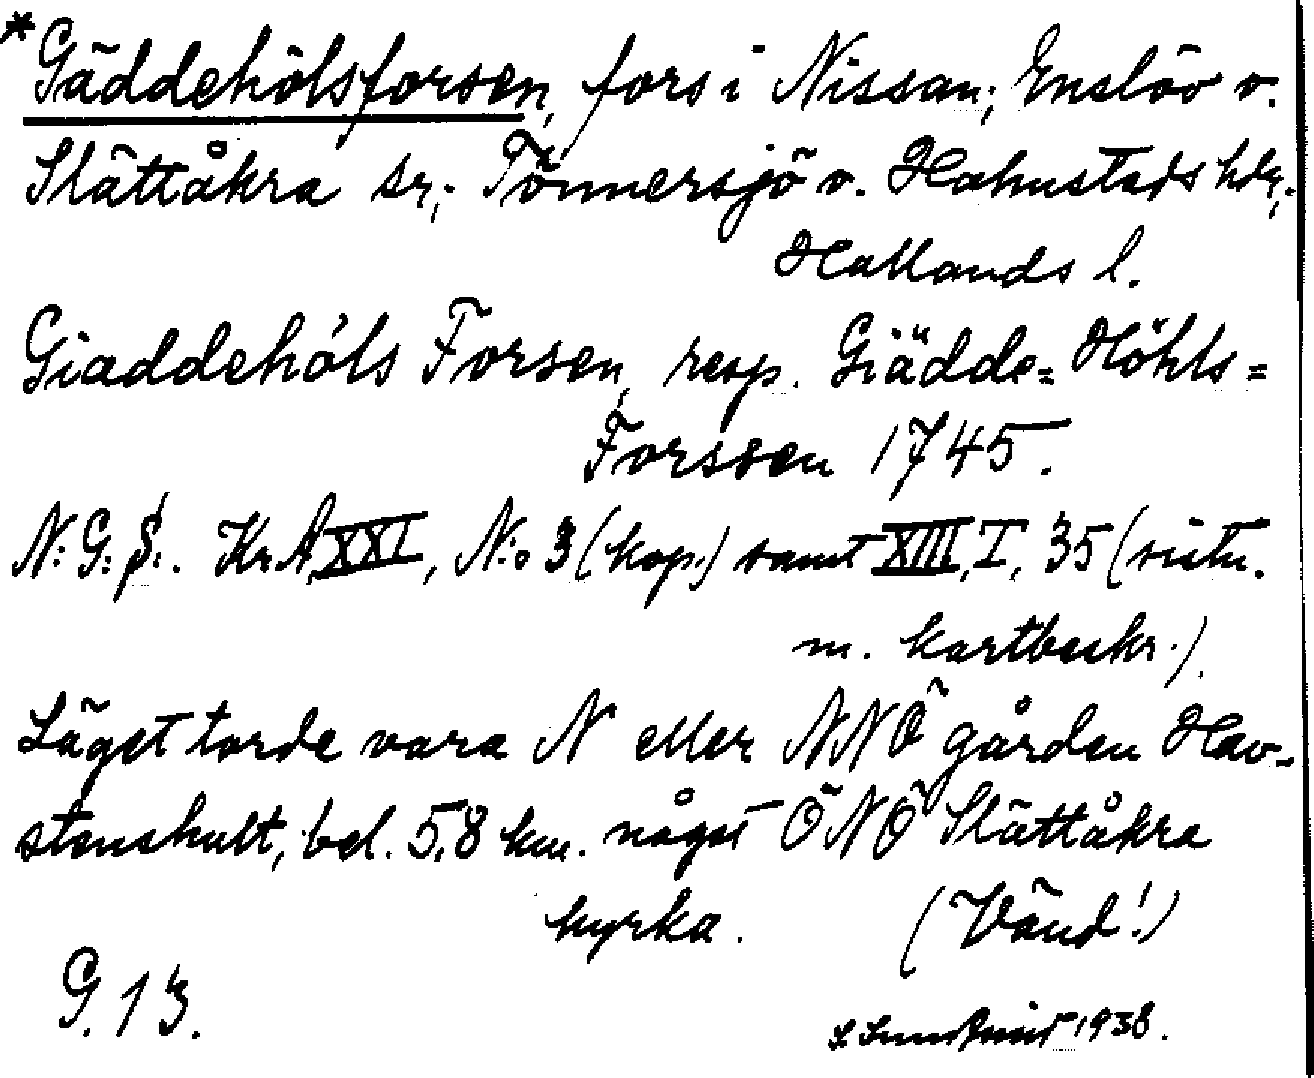 *Gäddehölsforsen, fors i Nissan; Enslöv o.
Slättåkra sr; Tönnersjö o. Halmstads hdr;
Hallands l.
Giaddehóls Forsen, resp. Giädde= Höhls=
Forssen 1745.
N:G:S:. Kr.A. XXI, N:o 3 (kop.) samt XIII, I, 35 (situ.
m. kartbeskr.).
Läget torde vara N eller NNÖ gården Hav-
stenshult, bel. 5,8 km. något ÖNÖ Slättåkra
kyrka. (Vänd!)
G. 13.
1938.